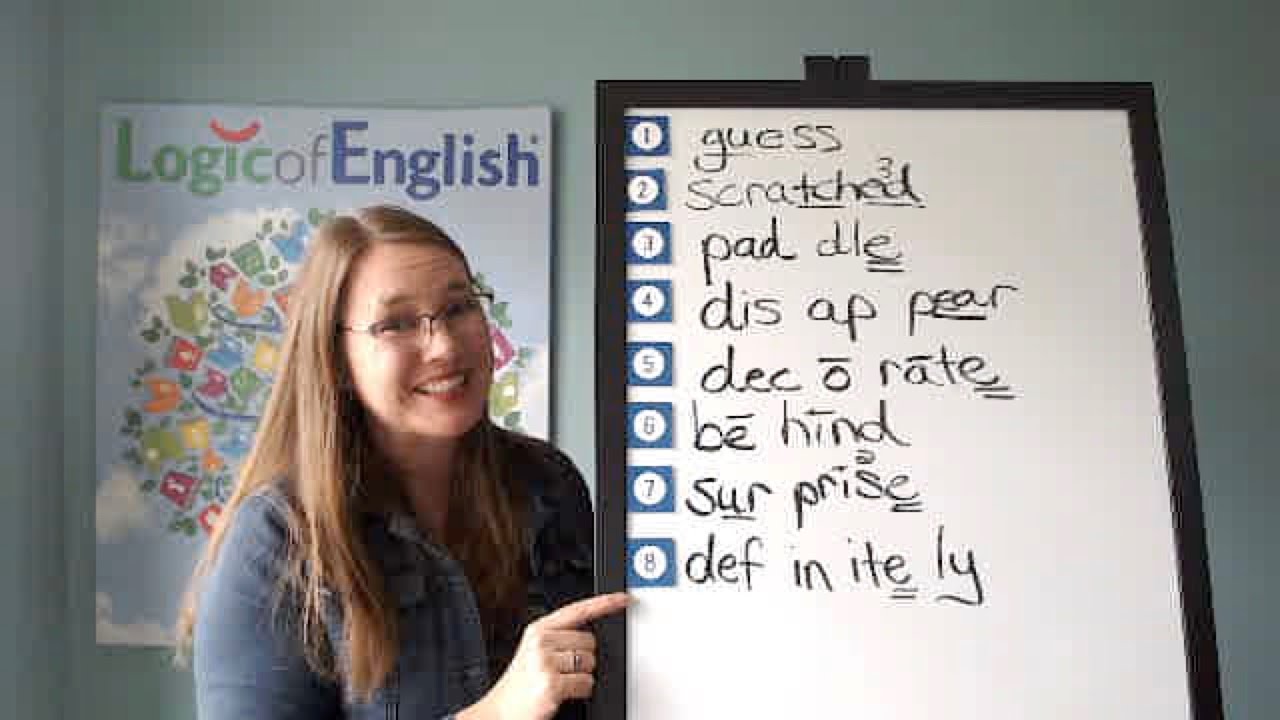 Logic of English
1 guess
2 scratched 3
3 pad dle
4 dis ap pear
5 dec ō rāte
6 bē hīnd
7 sur prise 2
8 def in ite ly